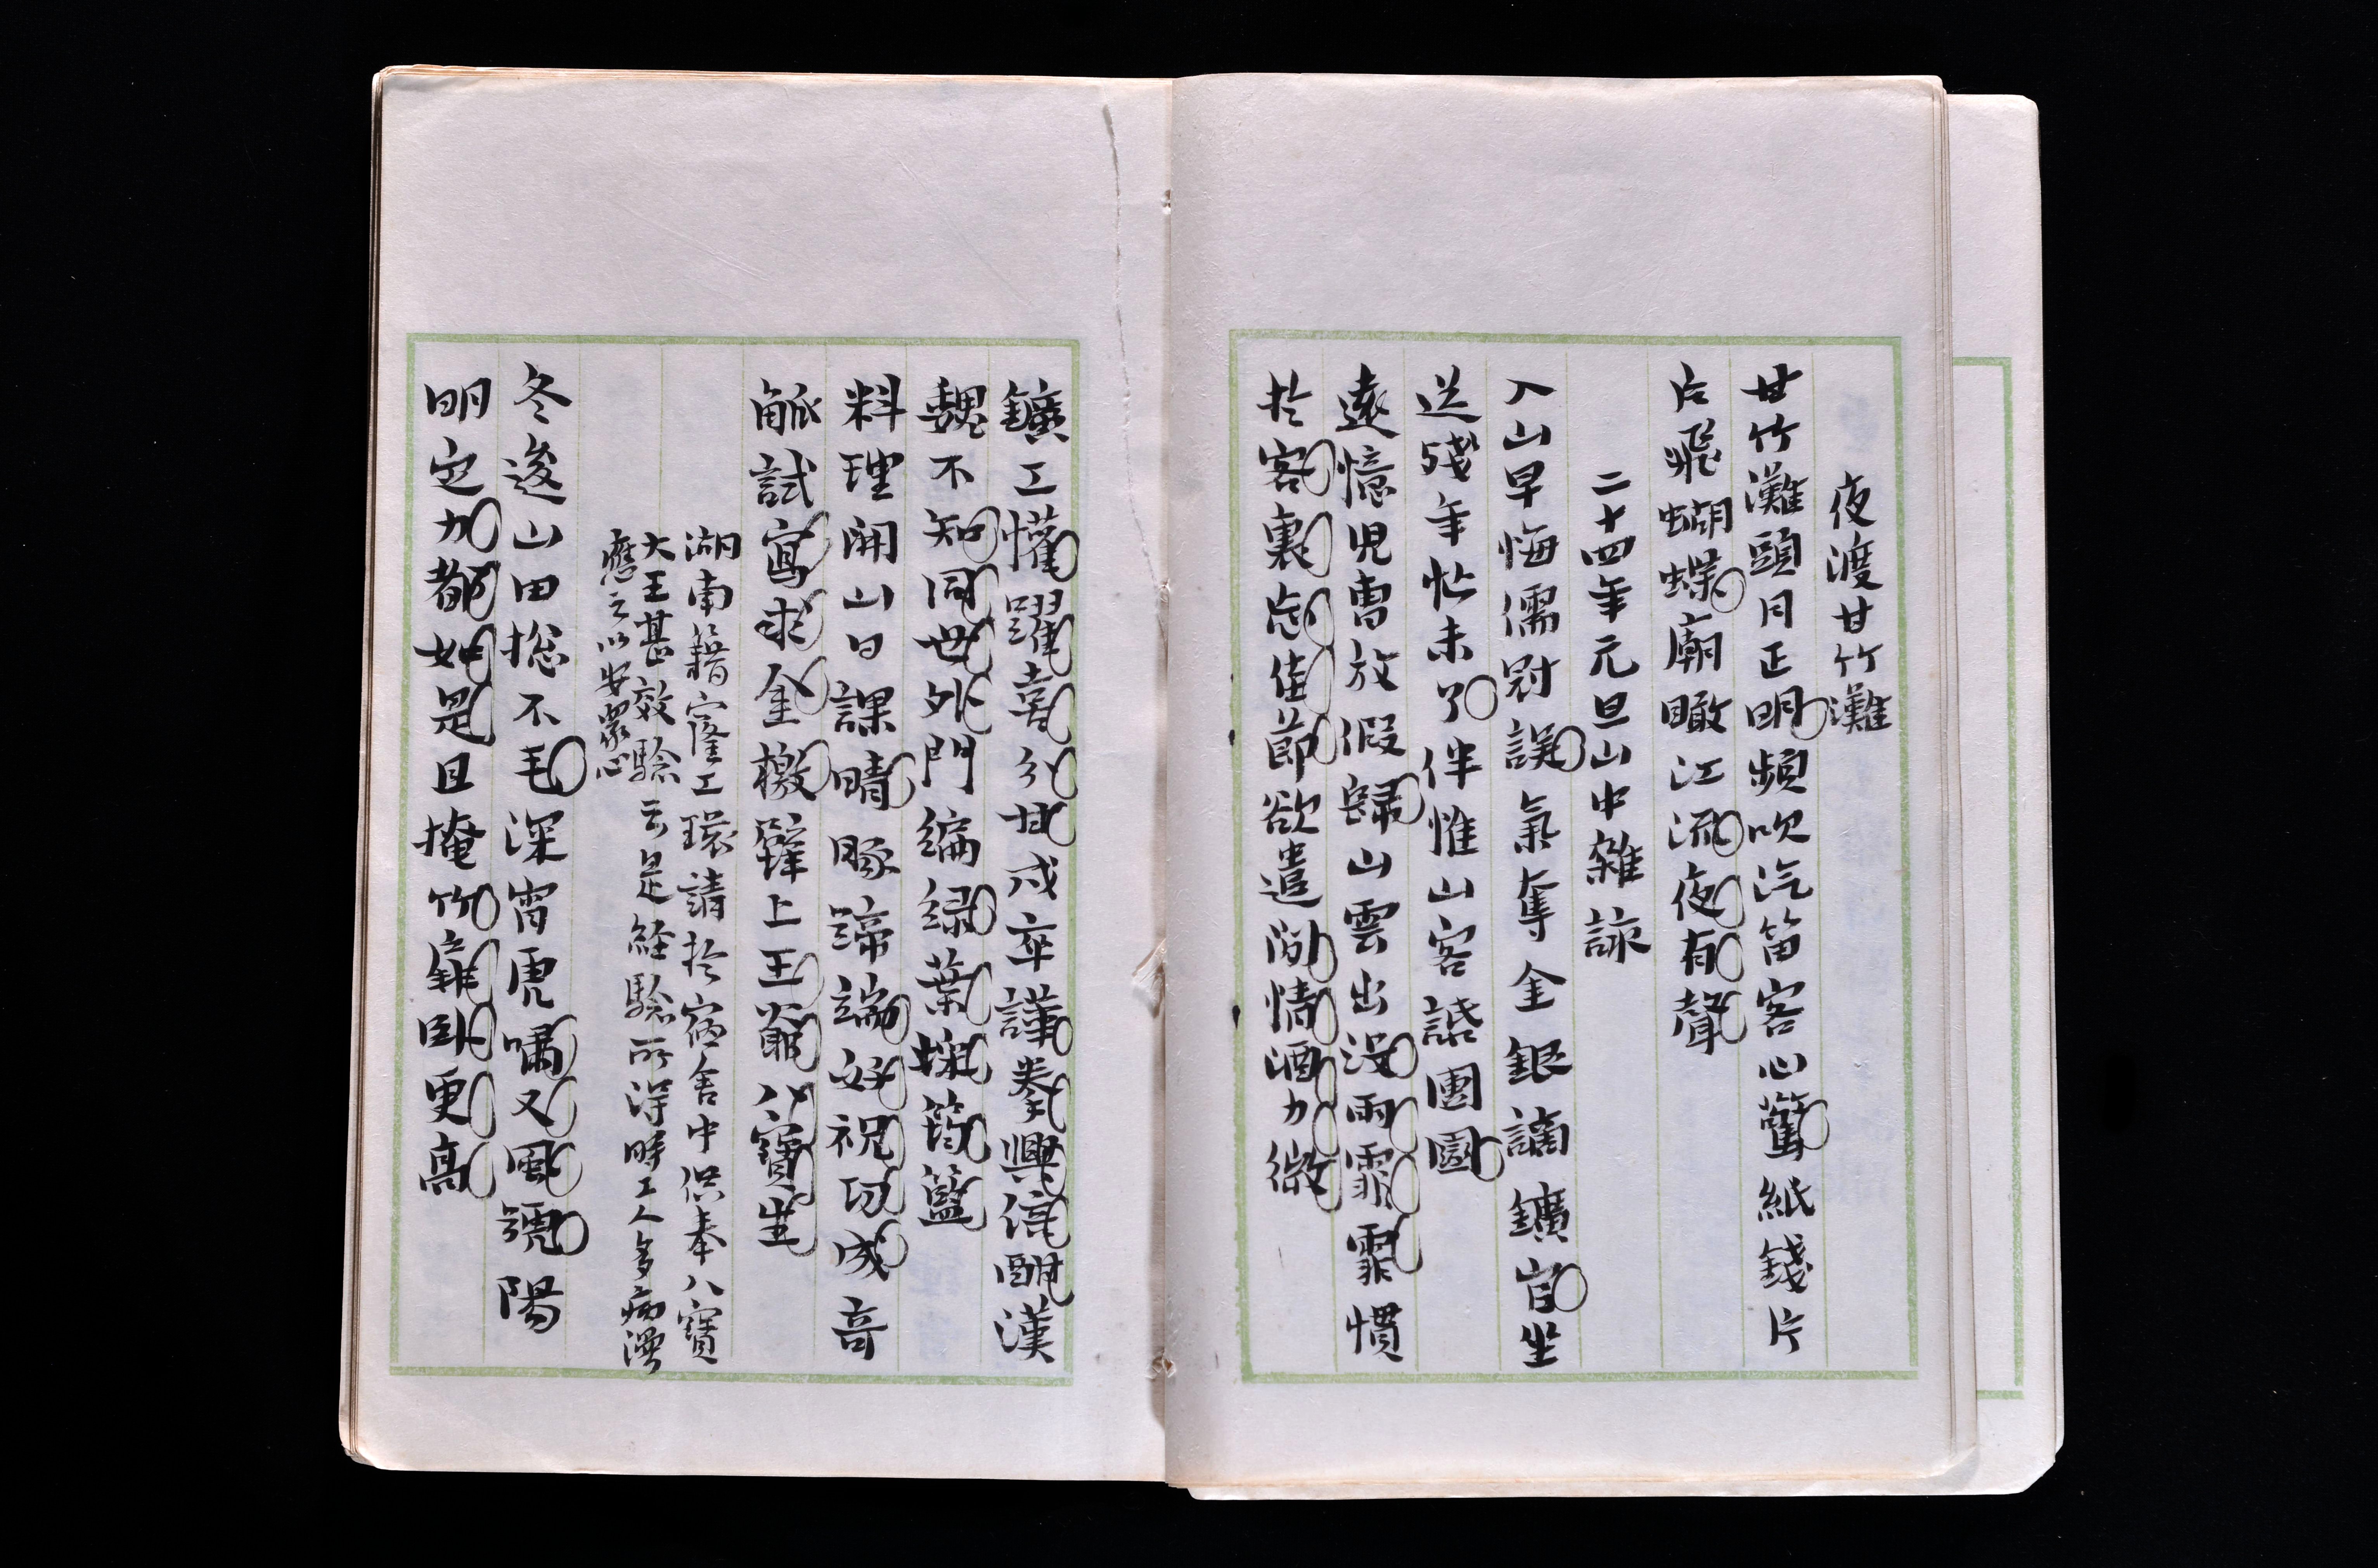 夜渡甘竹灘
甘竹灘頭月正明頻吹汽笛客心驚紙錢片
片飛蝴蝶廟瞰江流夜有聲
二十四年元旦山中雜詠
入山早悔儒冠誤氣奪金銀謫鑛官坐
送殘年忙未了伴惟山客話團圞
遠憶兒曹放假歸山雲出沒雨霏霏慣
於客裏忘佳節欲遣閒情酒力微
鑛工懽躍喜分甘戍卒譁拳興倍酣漢
魏不知同世外門編綠葉採筠籃
料理開山日課晴豚蹄端好祝功成奇
觚試寫求金檄薜上王爺八寶生
湖南籍窿工環請於窩舍中供奉八寶
大王甚效驗云是經驗所得時工人多病漫
應之以安衆心
冬逡山田總不毛深宵虎嘯又風號陽
明定力都如是且掩竹籬臥更高